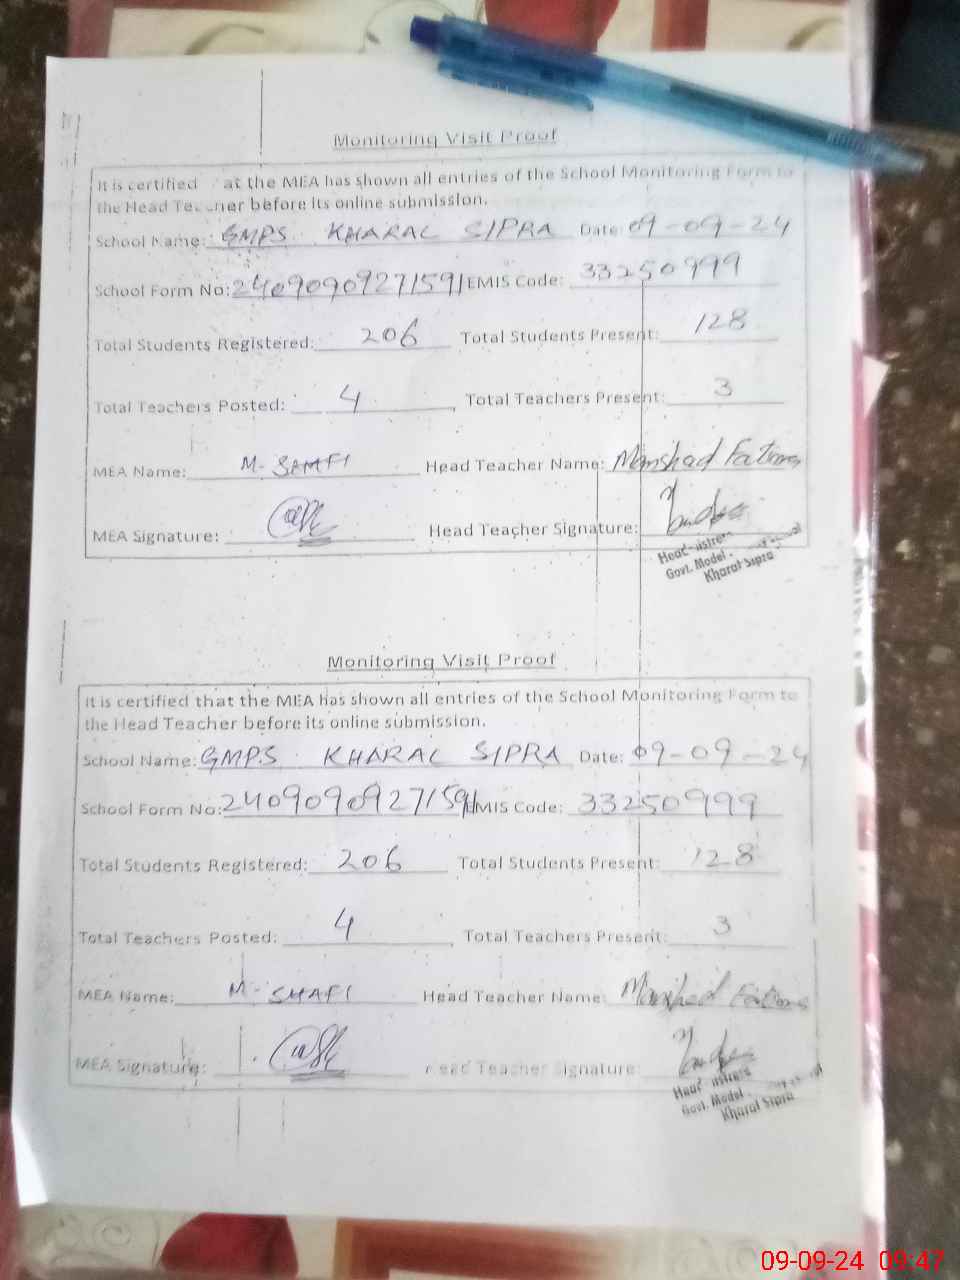 Monitoring Visit Proof
It is certified at the MEA has shown all entries of the School Monitoring Form to
the Head Teacher before its online submission.
School Name: GMPS KHARAL SIPRA Date: 09-09-24
School Form No: 2409090927159 EMIS Code: 33250999
Total Students Registered: 206 Total Students Present: 128
Total Teachers Posted: 4 Total Teachers Present: 3
MEA Name: M. SHAFI Head Teacher Name: Manshad Fatima
MEA Signature: Head Teacher Signature:
Govt. Model
Kharal Sipra
Monitoring Visit Proof
It is certified that the MEA has shown all entries of the School Monitoring Form to
the Head Teacher before its online submission.
School Name: GMPS KHARAL SIPRA Date: 09-09-24
School Form No: 2409090927159 EMIS Code: 33250999
Total Students Registered: 206 Total Students Present: 128
Total Teachers Posted: 4 Total Teachers Present: 3
MEA Name: M. SHAFI Head Teacher Name: Manshad Fatima
MEA Signature: Head Teacher Signature:
Govt. Model
Kharal Sipra
09-09-24 09:47